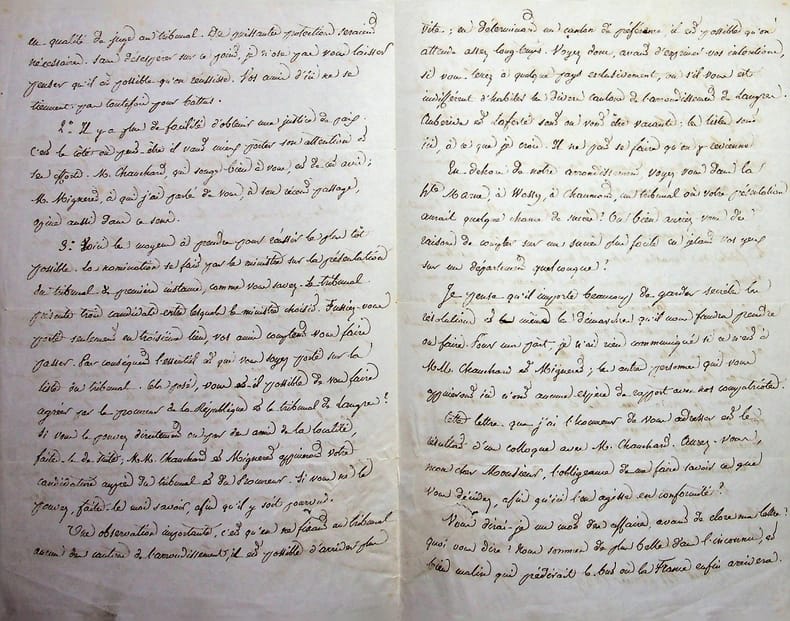 en qualité de juge au tribunal. De puissantes protections seraient
nécessaires. Sans désespérer sur ce point, je n'ose pas vous laisser
penser qu'il est possible qu'on réussisse. Vos amis d'ici ne se
tiennent pas toutefois pour battus.
2° Il y a plus de facilité d'obtenir une justice de paix.
C'est le côté où peut-être il vaut mieux porter son attention et
ses efforts. M. Chauchard, qui songe bien à vous, est de cet avis;
M. Migneret, à qui j'ai parlé de vous, à son récent passage,
opine aussi dans ce sens.
3° Voici les moyens à prendre pour réussir le plus tôt
possible. La nomination se fait par le ministre sur la présentation
du tribunal de première instance, comme vous savez. Le tribunal
présente trois candidats entre lesquels le ministre choisit. Fussiez-vous
porté seulement en troisième lieu, vos amis comptent vous faire
passer. Par conséquent l'essentiel est que vous soyez porté sur la
liste du tribunal. Cela posé, vous est-il possible de vous faire
agréer par le procureur de la République et le tribunal de Langres?
Si vous le pouvez directement ou par des amis de la localité,
faites-le de suite; MM. Chauchard et Migneret appuieront votre
candidature auprès du tribunal et du Procureur. Si vous ne le
pouvez, faites-le moi savoir, afin qu'il y soit pourvu.
Une observation importante, c'est qu'en ne fixant au tribunal
aucun des cantons de l'arrondissement, il est possible d'arriver plus
vite; en déterminant un canton de préférence il est possible qu'on
attende assez longtemps. Voyez donc, avant d'exprimer vos intentions,
si vous tenez à quelque pays exclusivement, ou s'il vous est
indifférent d'habiter les divers cantons de l'arrondissement de Langres.
Auberive et Laferté sont ou vont être vacants; les listes sont
ici, à ce que je crois. Il ne peut se faire qu'on y revienne.
En dehors de notre arrondissement voyez-vous dans la
hte Marne, à Wassy, à Chaumont, un tribunal où votre présentation
aurait quelque chance de succès? Ou bien auriez-vous des
raisons de compter sur un succès plus facile en jetant vos yeux
sur un département quelconque?
Je pense qu'il importe beaucoup de garder secrète la
résolution et même les démarches qu'il vous faudra prendre
ou faire. Pour ma part je n'ai rien communiqué si ce n'est à
MM. Chauchard et Migneret; les autres personnes qui vous
appuieront ici n'ont aucune espèce de rapport avec nos compatriotes.
Cette lettre, que j'ai l'honneur de vous adresser est le
résultat d'un colloque avec M. Chauchard. Aurez-vous,
mon cher Monsieur, l'obligeance de me faire savoir ce que
vous décidez, afin qu'ici l'on agisse en conformité?
Vous dirai-je un mot des affaires, avant de clore ma lettre?
Quoi vous dire? Nous sommes de plus belle dans l'inconnu, et
bien malin qui prédirait le but où la France enfin arrivera.